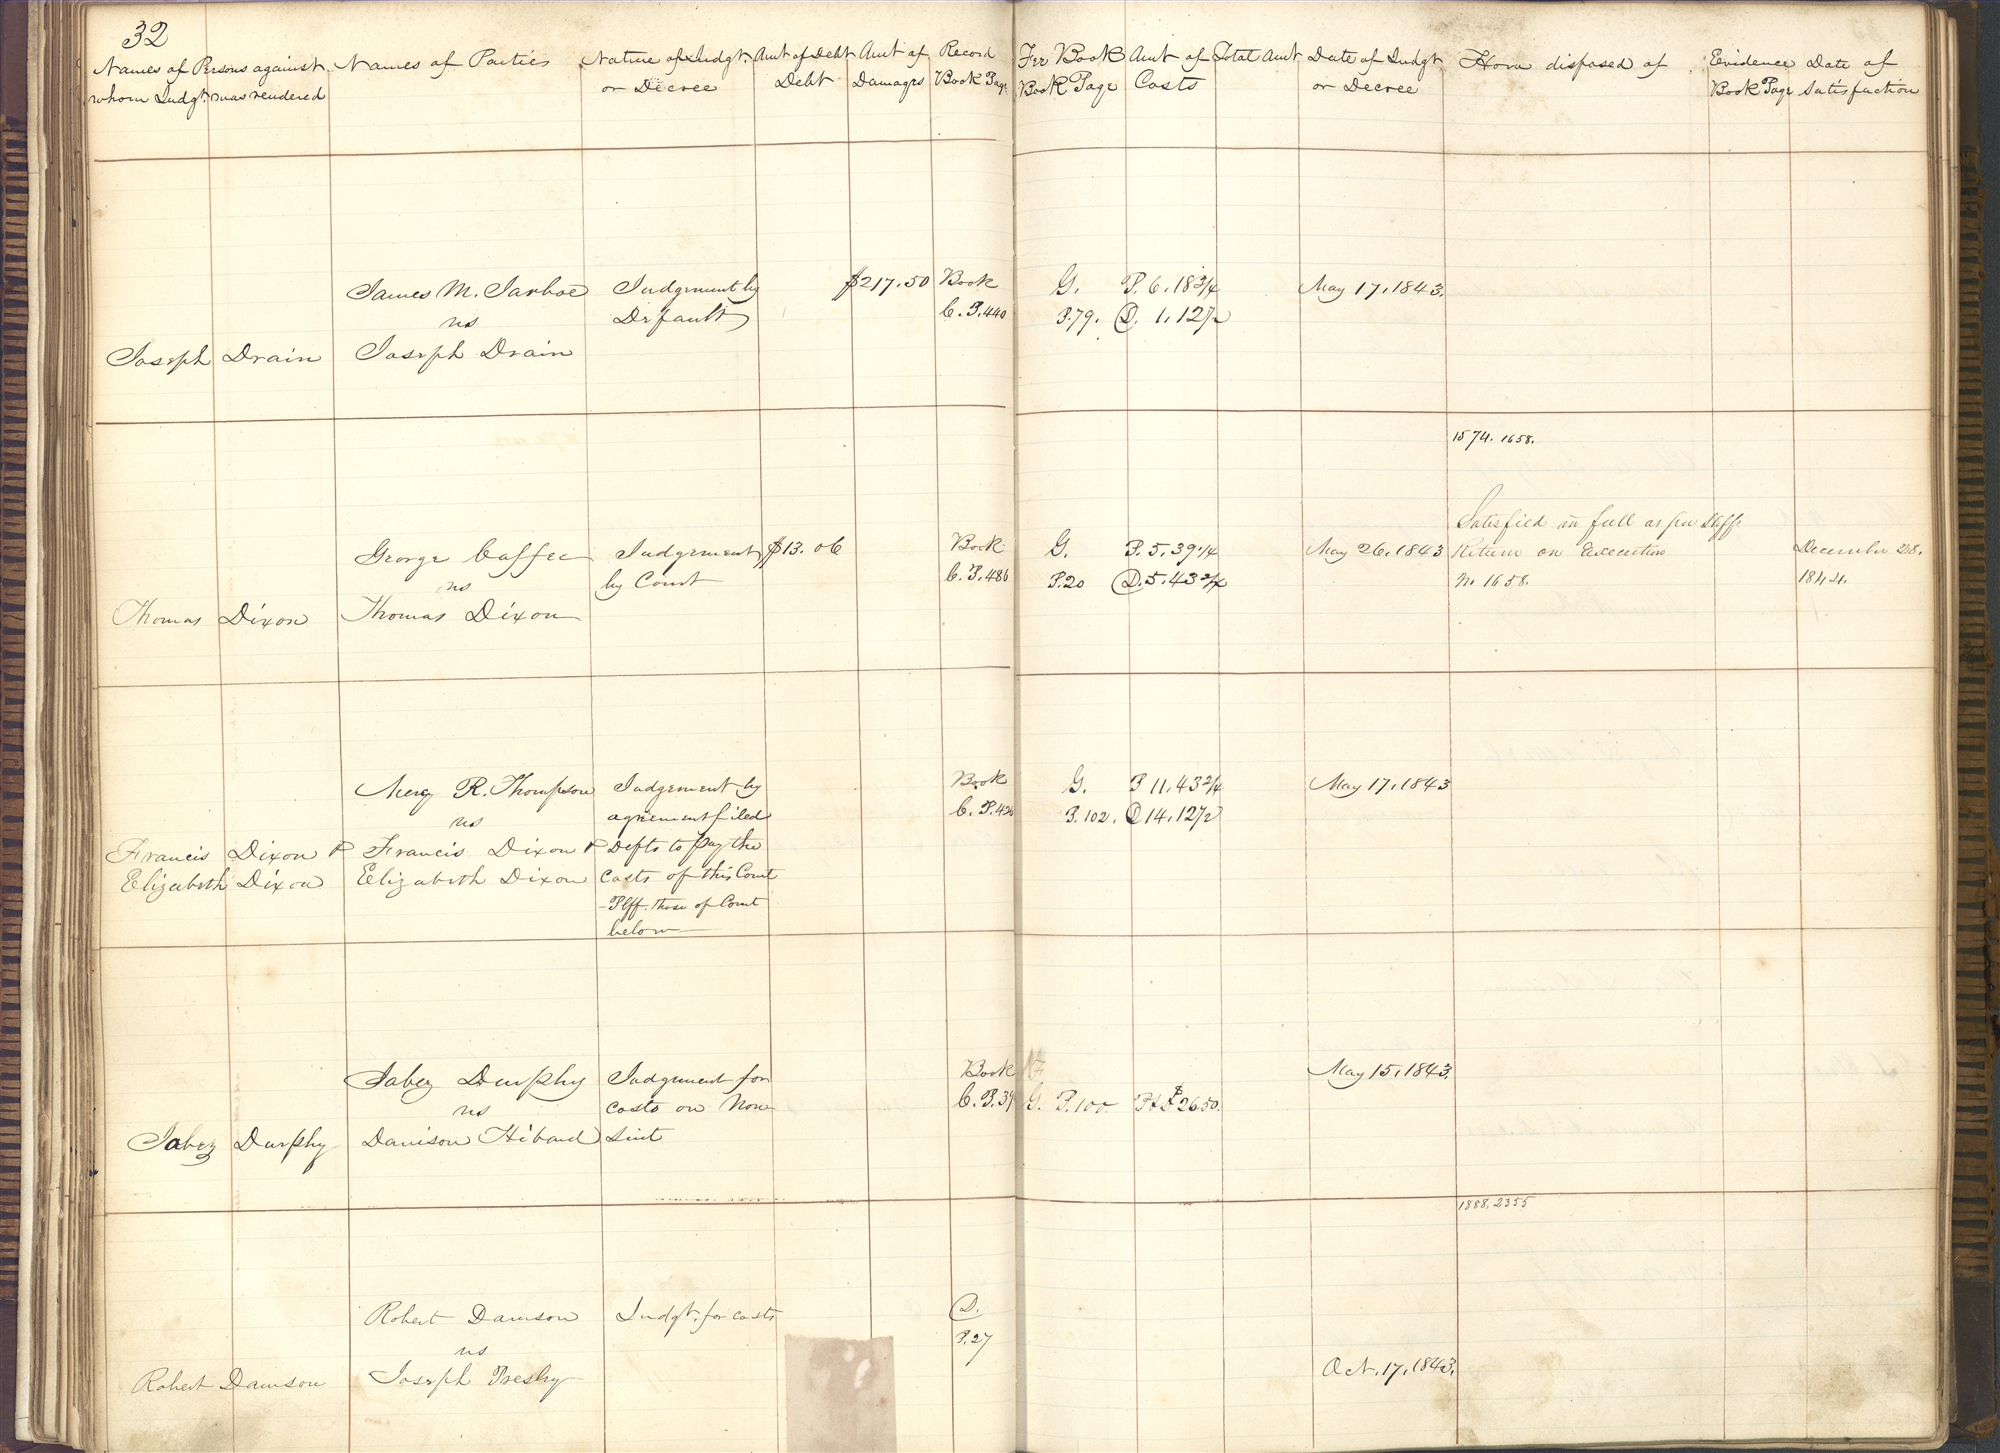 32
Names of Persons against whom Judgt. was rendered
Names of Parties
Nature of Judgt. or Decree
Amt of Debt Debt
Amt of Damages
Record Book Page
Fee Book Book Page
Amt of Costs
Total Amt
Date of Judgt or Decree
How disposed of
Evidence Book Page
Date of Satisfaction
James M. Jarboe
vs
Joseph Drain
Joseph Drain
Judgement by
Default
$217.50
Book
C. P. 440
G.
P. 79.
P. 6.18 3/4
D. 1.12 1/2
May 17, 1843.
1574. 1658.
George Caffee
vs
Thomas Dixon
Thomas Dixon
Judgement
by Court
$13.06
Book
C. P. 486
G.
P. 20
P. 5.39 1/4
D. 5.43 3/4
May 26, 1843
Satisfied in full as per Shff
Return on Execution
No. 1658.
December 28.
1844.
R. Thompson
vs
Francis Dixon &
Elizabeth Dixon
Francis Dixon &
Elizabeth Dixon
Judgement by
agreement filed
Defts to pay the
costs of this Court
- Plff. those of Court
below
Book
C. P.
G.
P. 102.
P 11.43 3/4
D 14.12 1/2
May 17, 1843
Jabez Durphy
vs
Danison Hibard
Jabez Durphy
Judgement for
costs on Non
Suit
Book
C. P. 39
G. P. 100.
$26.50.
May 15, 1843.
1888. 2355
Robert Dawson
vs
Joseph Presby
Robert Dawson
Judgt. for costs
D.
P. 27
Oct. 17, 1843.